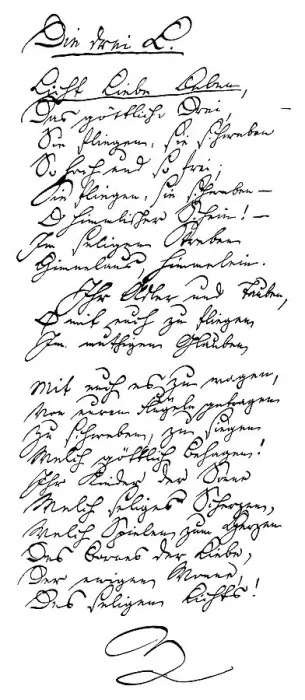 Die drei L.
Licht Liebe Leben,
Das göttliche Drei,
Sie fliegen, sie schweben
So hoch und so frei;
Sie fliegen, sie schweben —
O himmlischer Schein! —
Im seligen Streben
Himmelaus, himmelein.
Ihr Adler und Tauben,
O mit euch zu fliegen
Im muthigen Glauben,
Mit euch es zu wagen,
Von euren Flügeln getragen
Zu schweben, zu siegen
Welch göttlich Behagen!
Ihr Kinder der Sonne
Welch seliges Scherzen,
Welch Spielen zum Herzen
Des Bornes der Liebe,
Der ewigen Wonne,
Des seligen Lichts!